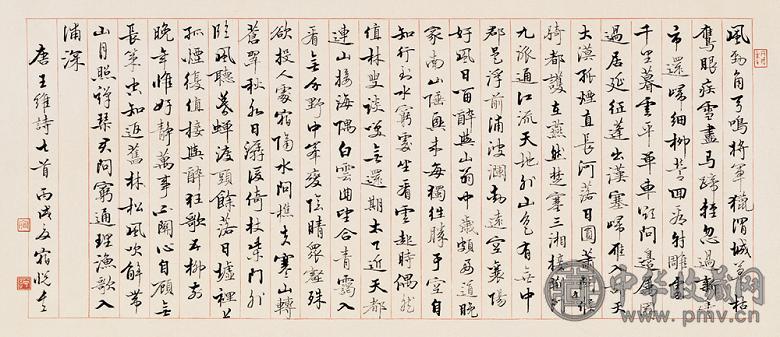 風勁角弓鳴將軍獵渭城草枯
鷹眼疾雪盡馬蹄輕忽過新豐
市還歸細柳營回看射雕處
千里暮雲平單車欲問邊屬國
過居延征蓬出漢塞歸雁入胡天
大漠孤煙直長河落日圓蕭關逢候
騎都護在燕然楚塞三湘接荊門
九派通江流天地外山色有無中
郡邑浮前浦波瀾動遠空襄陽
好風日留醉與山翁中歲頗好道晚
家南山陲興來每獨往勝事空自
知行到水窮處坐看雲起時偶然
值林叟談笑無還期太乙近天都
連山接海隅白雲回望合青靄入
看無分野中峰變陰晴眾壑殊
欲投人處宿隔水問樵夫寒山轉
蒼翠秋水日潺湲倚杖柴門外
臨風聽暮蟬渡頭餘落日墟裡上
孤煙復值接輿醉狂歌五柳前
晚年惟好靜萬事不關心自顧無
長策空知返舊林松風吹解帶
山月照彈琴君問窮通理漁歌入
浦深
唐王維詩七首丙戌
中华收藏网
www.pmv.cn